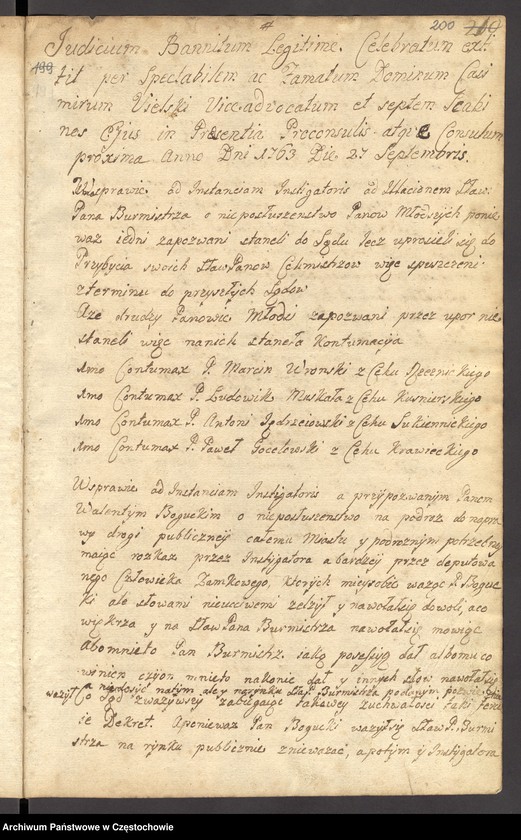 200 210
199
Judicium Bannitum Legitime. Celebratum exti
tit per Spectabilem ac Famatum Dominum Casi
mirum Vielski Vice-advocatum et septem Scabi
nes Ejus in Presentia Preconsulis atqe Consulum
proxima Anno Dni 1763 Die 27 Septembris.
W sprawie ad Instanciam Instigatoris ad Illacionem Sław:
Pana Burmistrza o nieposłuszenstwo Panow Młodszych ponie
waz iedni zapozwani staneli do Sądu lecz uprosieli się do
Przybycia swoich Sław Panow Cechmistrzow więc spuszczeni
z terminu do przyszłych Sądow
Aze drudzy Panowie Młodsi zapozwani przez upor nie
staneli więc na nich staneła Kontumacyja
Imo Contumax P. Marcin Wronski z Cechu Rzeznickiego
Imo Contumax P. Ludowik Muskała z Cechu Kusnierskiego
Imo Contumax P. Antoni Jędrzeiowski z Cechu Sukiennickiego
Imo Contumax P. Paweł Gocełowski z Cechu Krawieckiego
W sprawie ad Instanciam Instigatoris a przypozwanym Panem
Walentym Boguckim o nieposłuszenstwo na podroz do napra
wy drogi publiczney całemu Miastu y podroznym potrzebną
maiąc rozkaz przez Instigatora a bardziey przez deputowa
nego Człowieka Zamkowego, ktorych miey sobie waząc P. Boguc
ki ale słowami nieuczciwemi zelzył y nawołałsię dowoli, a co
większa y na Sław Pana Burmistrza nawołałsię mowiąc
abo mnieto Pan Burmistrz iaką posesyią dał albo mu co
winien czyon mnieto nakonie dał y innych słow nawołałsię
a niedosić natym ale y na rynku Sław Burmistrza podobnym
wazył Co Sąd zwazywszy zabiegaiąc takowey zuchwałosci taki feru
ie Dekret. A poniewaz Pan Bogucki wazyłsię Sław P. Burmi
strza na rynku publicznie zniewazac, a potym y Instigatora
Archiwum Państwowe w Częstochowie